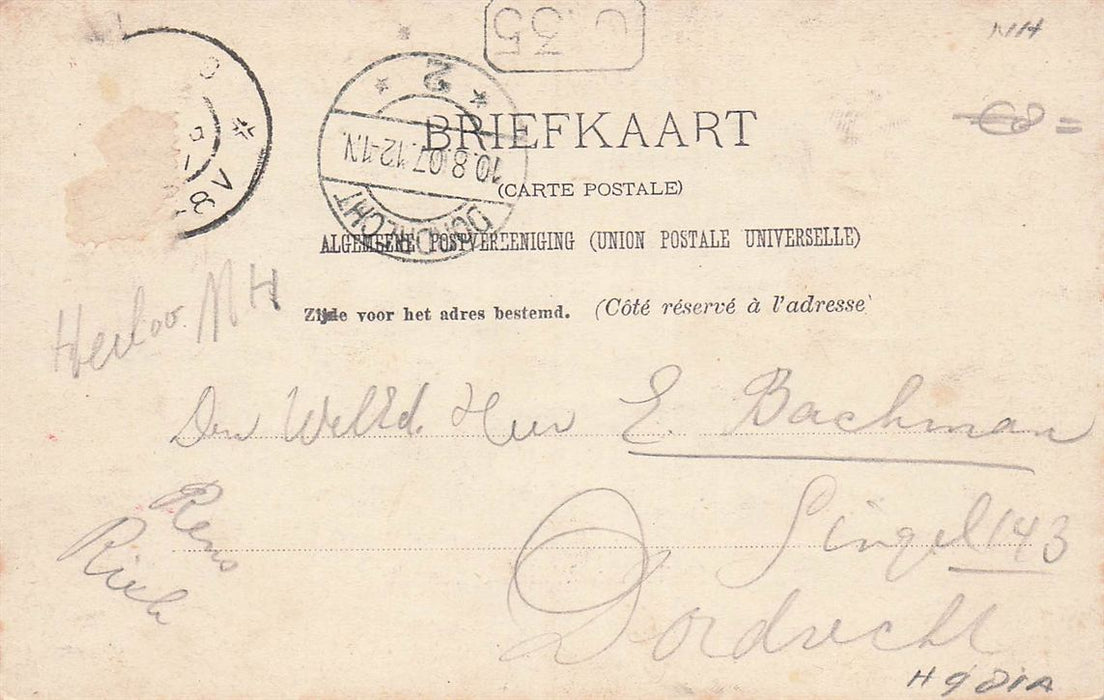 35
NH
€8=
2
10.8.07.12-1.N
DORDRECHT
BRIEFKAART
(CARTE POSTALE)
ALGEMEENE POSTVEREENIGING (UNION POSTALE UNIVERSELLE)
Zijde voor het adres bestemd. (Côté réservé à l'adresse
Heiloo NH
Den WelEd. Heer E. Bachman
Singel 143
Dordrecht